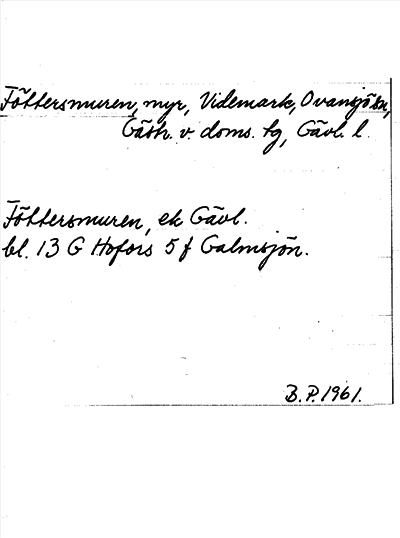 Töttersmuren, myr, Videmark, Ovansjö sn,
Gästr. v. doms. tg, Gävl. l.
Töttersmuren, ek Gävl.
bl. 13 G Hofors 5 f Galmsjön.
B.P. 1961.